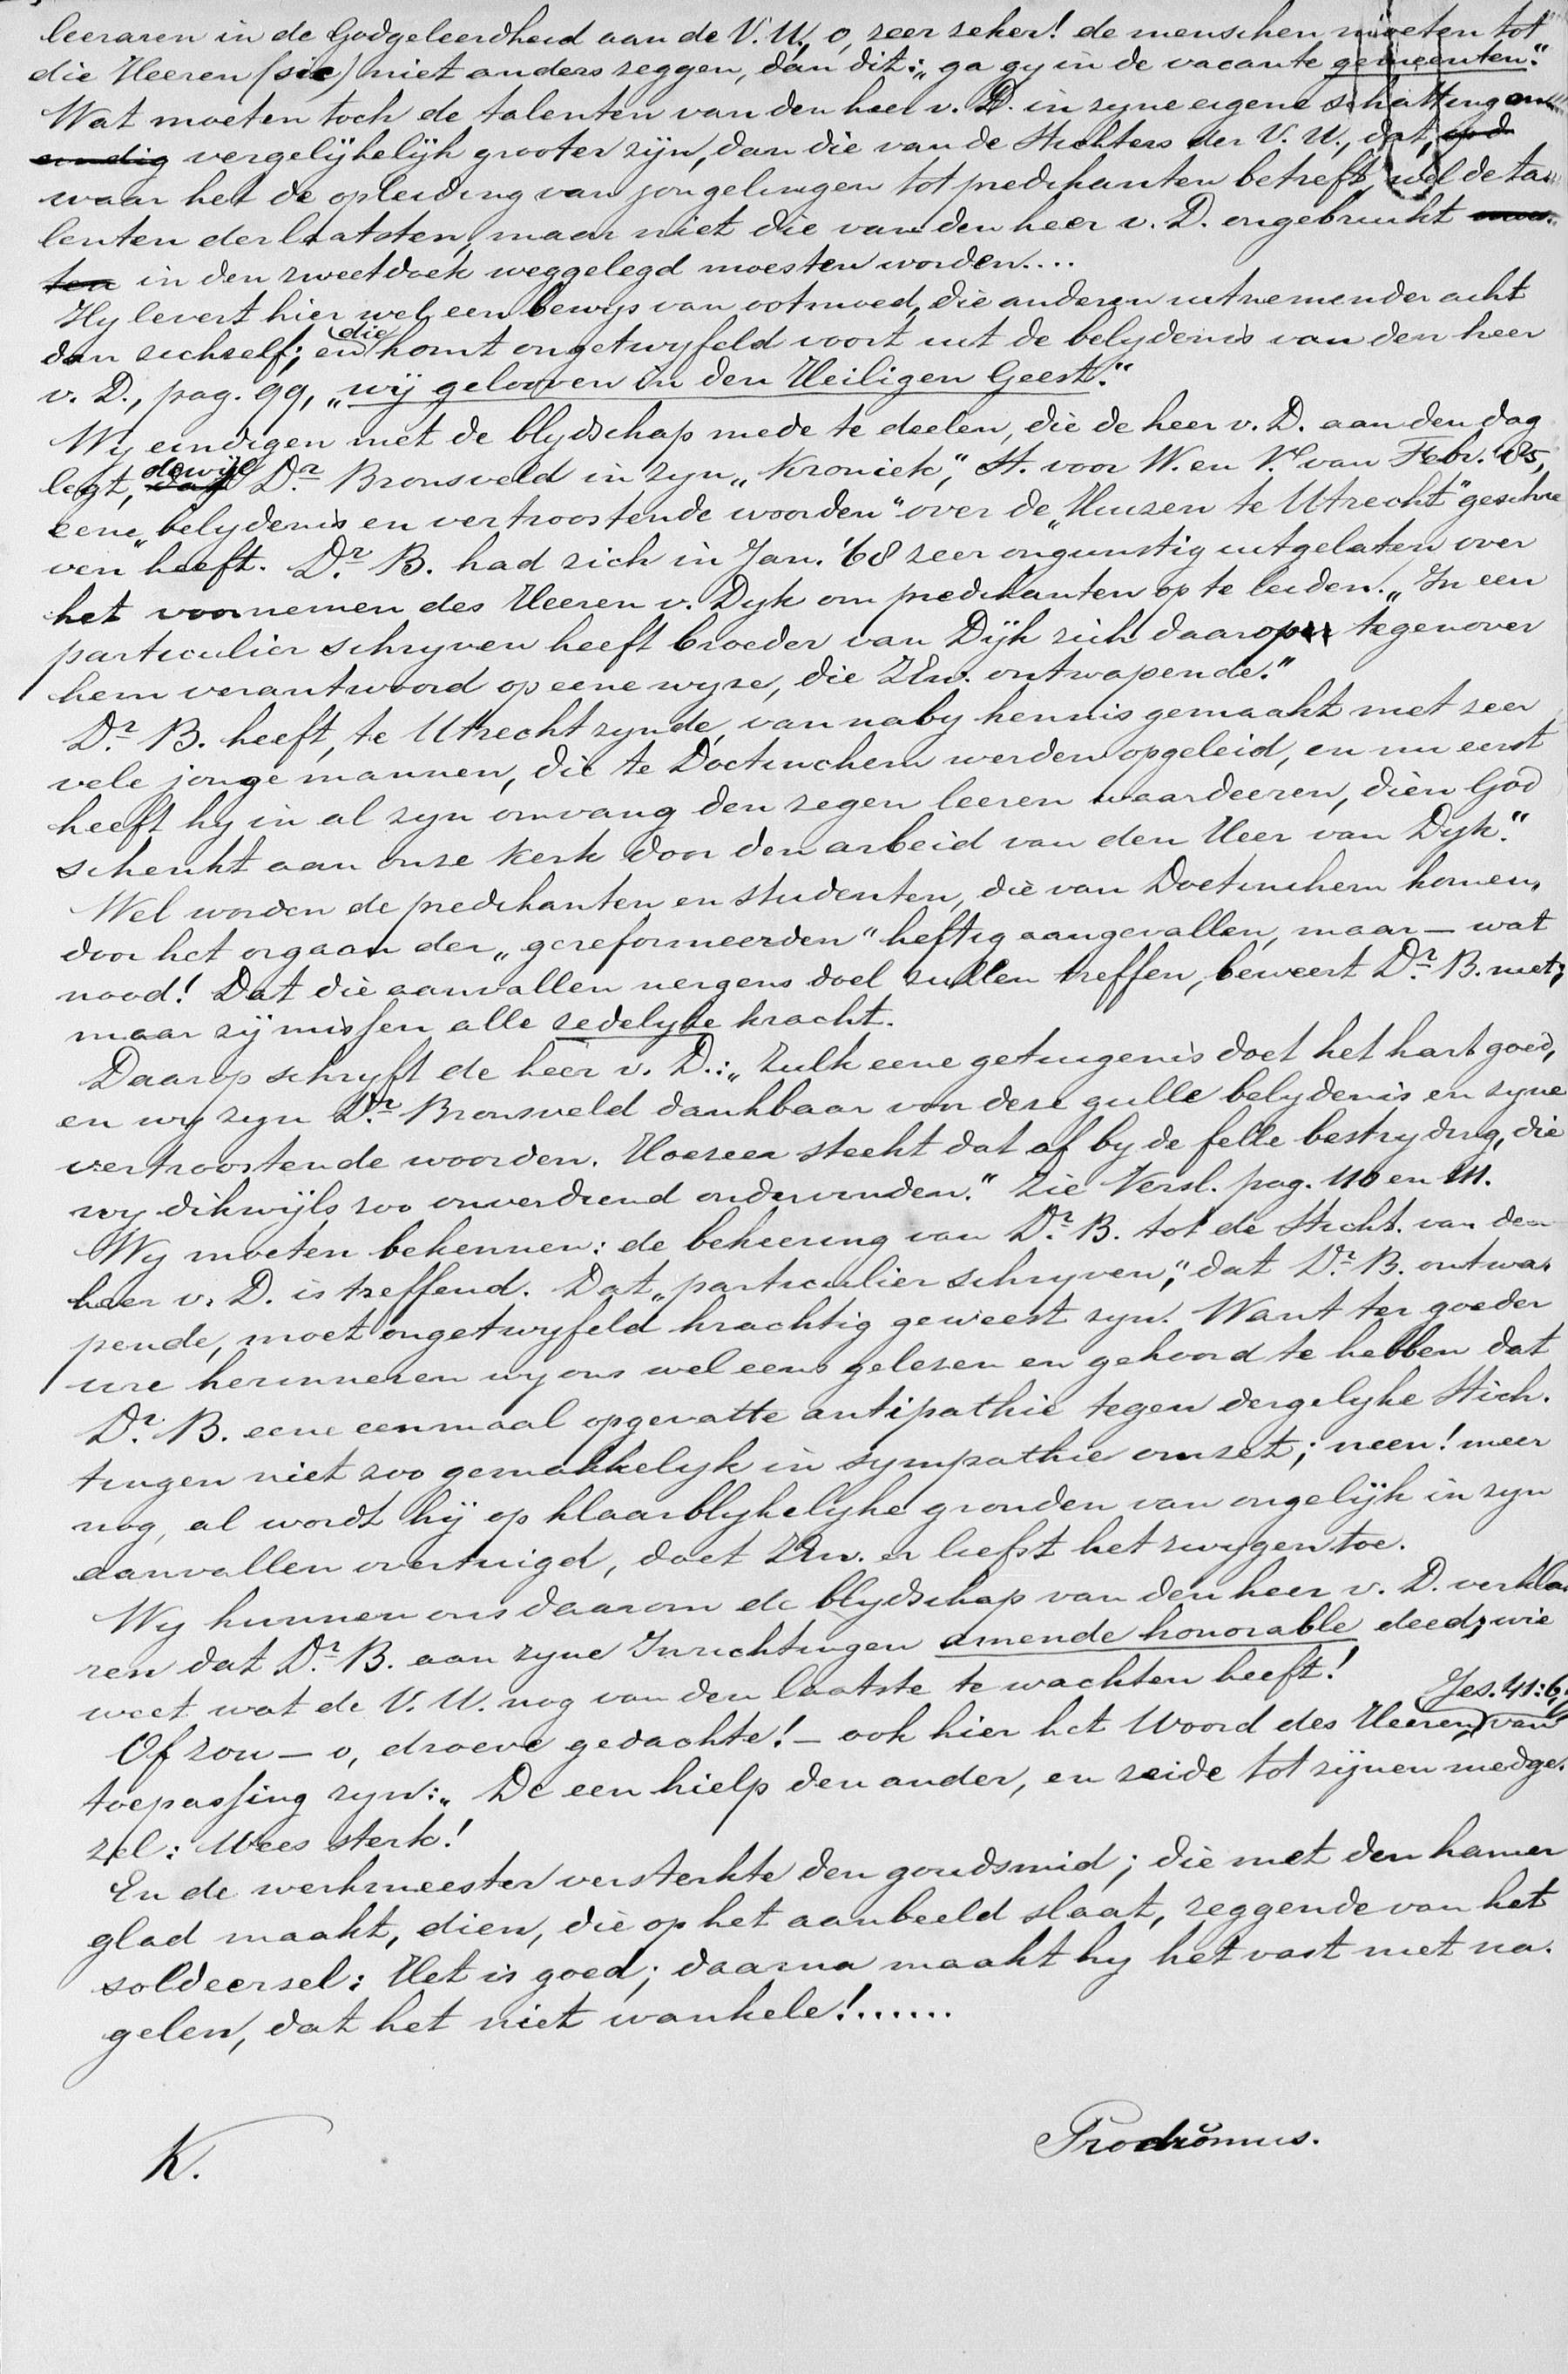 leeraren in de Godgeleerdheid aan de V. U., o, zeer zeker! de menschen moeten tot
die Heeren (sic) niet anders zeggen, dan dit: „ga gy in de vacante gemeenten."
Wat moeten toch de talenten van den heer v. D. in zyne eigene schatting on-
eindig vergelijkelijk grooter zijn, dan die van de Stichters der V. U., dat, op d
waar het de opleiding van jongelingen tot predikanten betreft, wel de ta-
lenten der laatsten, maar niet die van den heer v. D. ongebruikt moes-
ten in den zweetdoek weggelegd moesten worden....
Hy levert hier wel een bewys van ootmoed, die anderen uitnemender acht
dan zichzelf; en die komt ongetwyfeld voort uit de belydenis van den heer
v. D., pag. 99, „wij gelooven in den Heiligen Geest."
Wy eindigen met de blydschap mede te deelen, die de heer v. D. aan den dag
legt, dat dewijl Dr. Bronsveld in zyn „Kroniek", St. voor W. en V. van Febr. '85,
eene „belydenis en vertroostende woorden" over de „Huizen te Utrecht" geschre
ven heeft. Dr. B. had zich in Jan. '68 zeer ongunstig uitgelaten over
het voornemen des Heeren v. Dyk om predikanten op te leiden. „In een
particulier schryven heeft broeder van Dijk zich daarop tegenover
hem verantwoord op eene wyze, die ZEw. ontwapende."
Dr. B. heeft, te Utrecht zynde, van naby kennis gemaakt met zeer
vele jonge mannen, die te Doetinchem werden opgeleid, en nu eerst
heeft hy in al zyn omvang den zegen leeren waardeeren, dien God
schenkt aan onze Kerk door den arbeid van den Heer van Dyk."
Wel worden de predikanten en studenten, die van Doetinchem komen,
door het orgaan der „gereformeerden" heftig aangevallen, maar — wat
nood! Dat die aanvallen nergens doel zullen treffen, beweert Dr. B. niet;
maar zij missen alle zedelyke kracht.
Daarop schryft de heer v. D.: „Zulk eene getuigenis doet het hart goed,
en wy zyn Dr. Bronsveld dankbaar van deze gulle belydenis en zyne
vertroostende woorden. Hoezeer steekt dat af by de felle bestryding, die
wy dikwijls zoo onverdiend ondervinden." Zie Versl. pag. 110 en 111.
Wy moeten bekennen: de bekeering van Dr. B. tot de Sticht. van den
heer v. D. is treffend. Dat „particulier schryven", dat Dr. B. ontwa-
pende, moet ongetwyfeld krachtig geweest zyn. Want ter goeder
ure herinneren wy ons wel eens gelezen en gehoord te hebben dat
Dr. B. eene eenmaal opgevatte antipathie tegen dergelyke Stich-
tingen niet zoo gemakkelyk in sympathie omzet; neen! meer
nog, al wordt hij op klaarblykelyke gronden van ongelijk in zyn
aanvallen overtuigd, doet ZEw. er liefst het zwygen toe.
Wy kunnen ons daarom de blydschap van den heer v. D. verkla-
ren dat Dr. B. aan zyne Inrichtingen amende honorable deed; wie
weet wat de V. U. nog van den laatste te wachten heeft!
Of zou — o, droeve gedachte! — ook hier het Woord des Heeren, Jes. 41:6, van
toepassing zyn: „De een hielp den ander, en zeide tot zijnen medge-
zel: Wees sterk!
En de werkmeester versterkte den goudsmid; die met den hamer
glad maakt, dien, die op het aanbeeld slaat, zeggende van het
soldeersel: Het is goed; daarna maakt hy het vast met na-
gelen, dat het niet wankele!......
K.
Prodrŏmus.